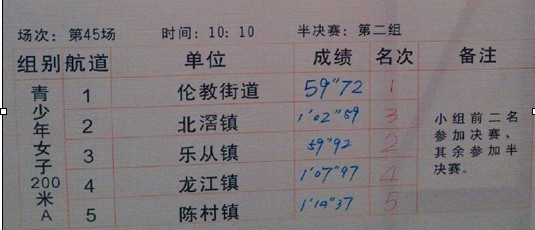 场次：第45场 时间：10：10 半决赛：第二组
组别 航道 单位 成绩 名次 备注
青少年女子200米A
1 伦教街道 59"72 1
2 北滘镇 1'02"59 3
3 乐从镇 59"92 2
4 龙江镇 1'07"97 4
5 陈村镇 1'19"37 5
小组前二名
参加决赛、
其余参加半
决赛。